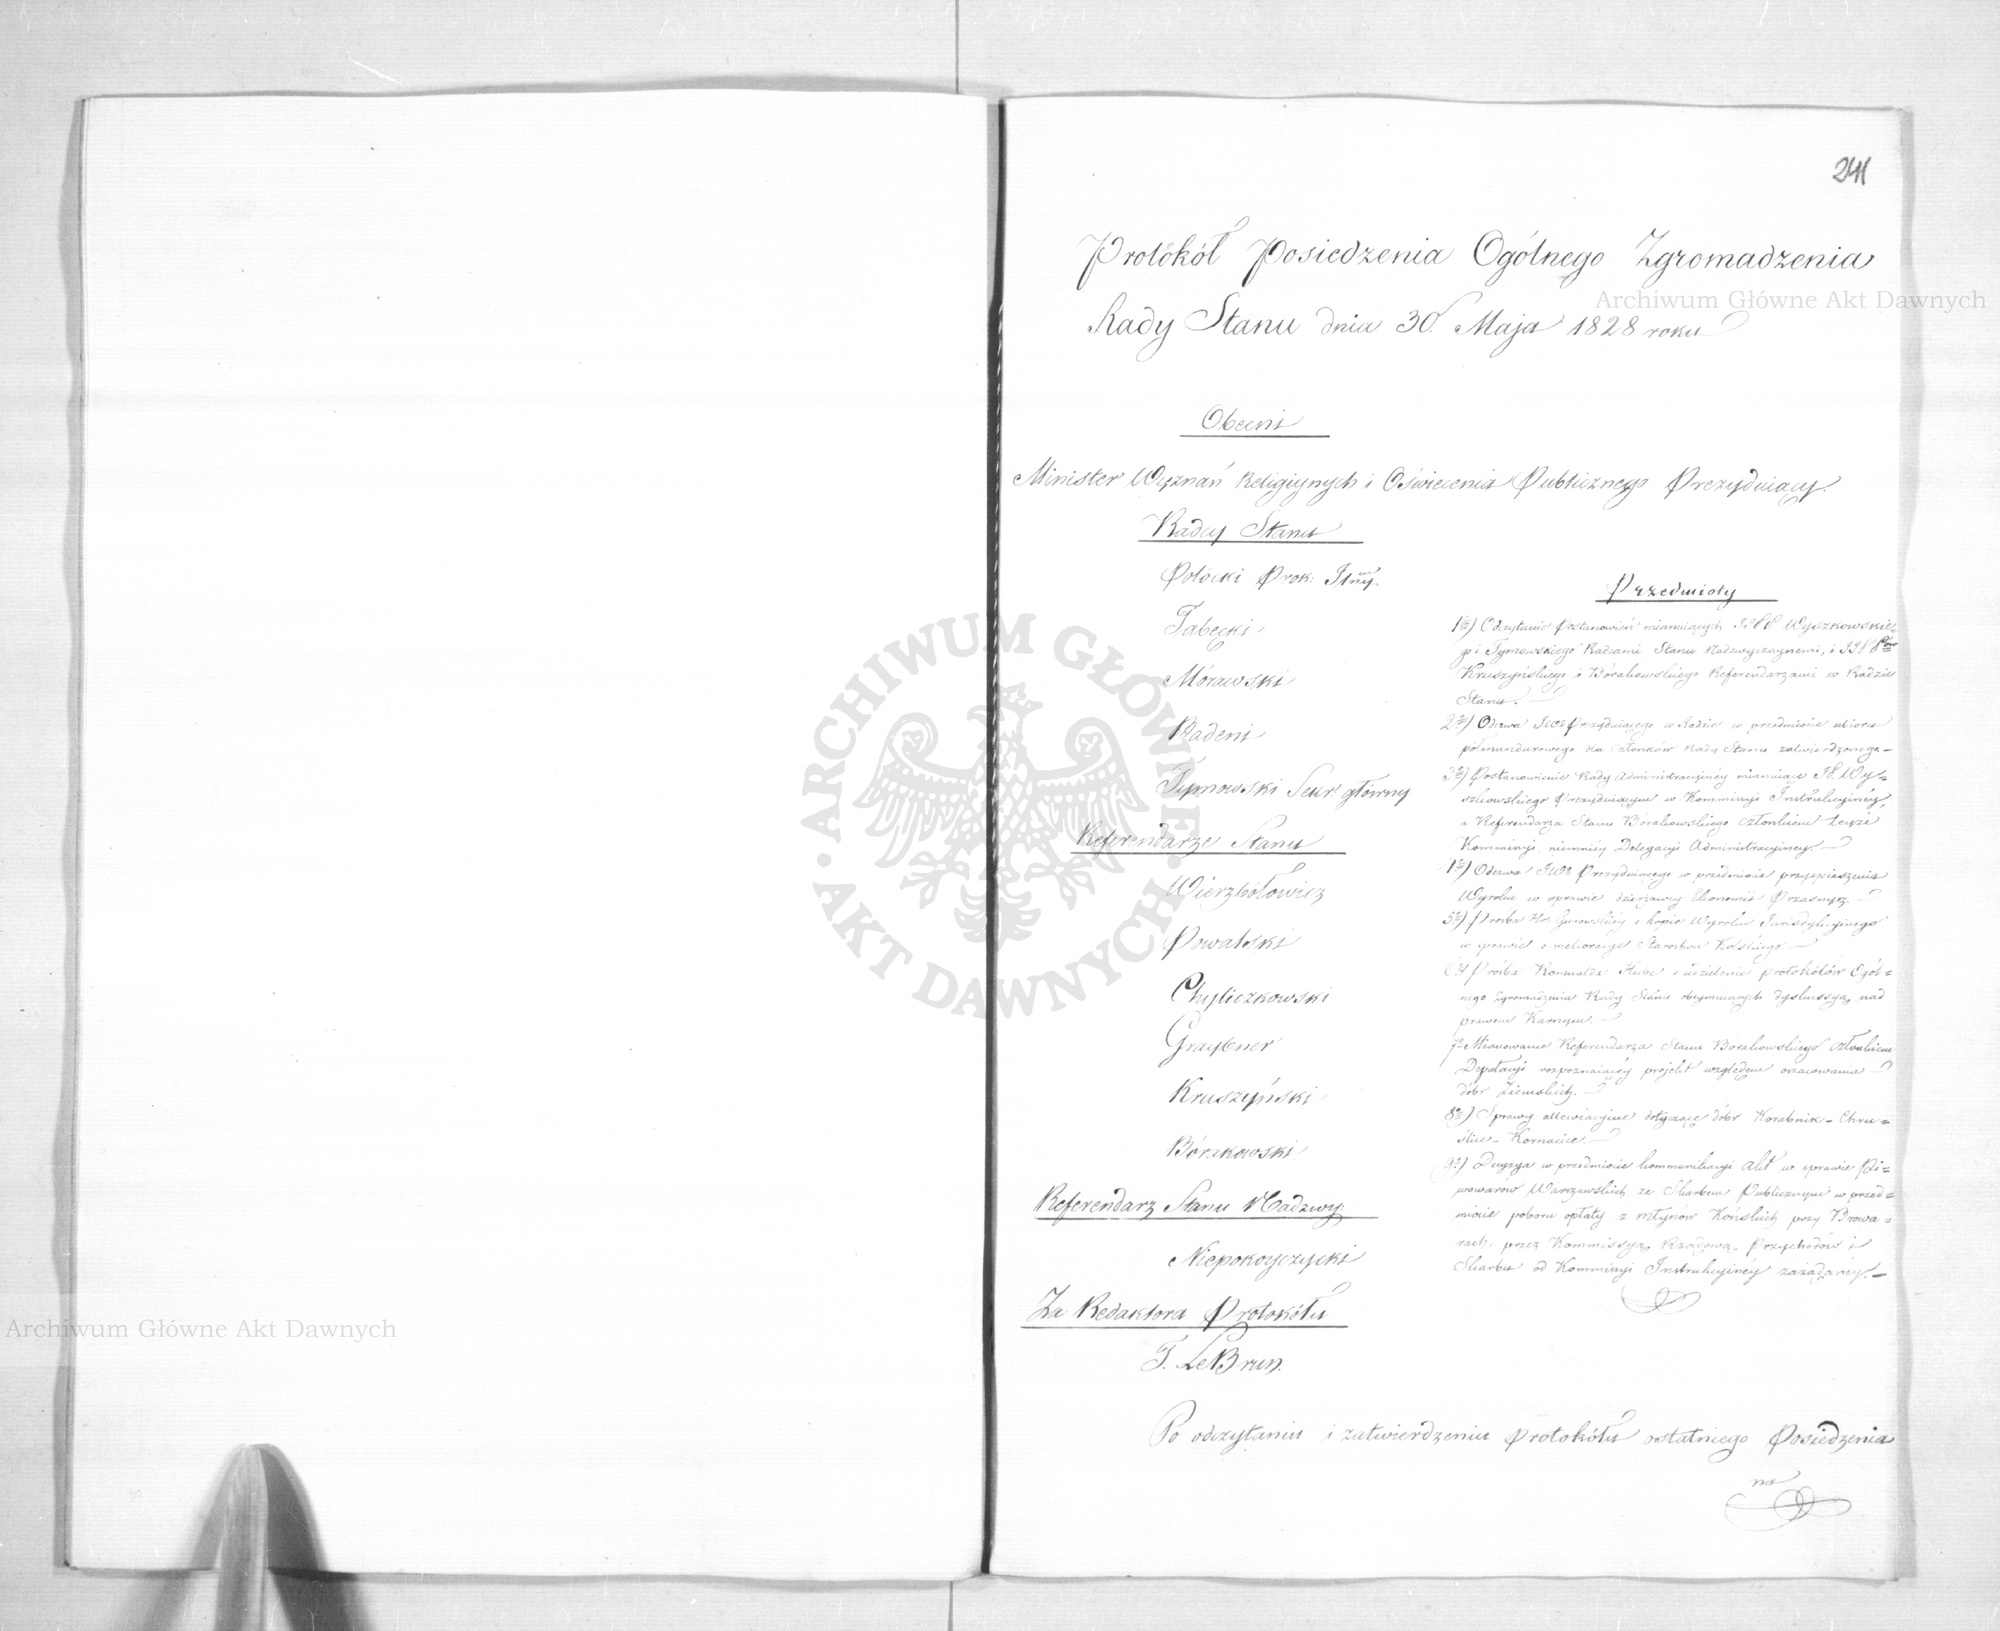 241
Protókół Posiedzenia Ogólnego Zgromadzenia
Rady Stanu dnia 30. Maja 1828 roku
Obecni
Minister Wyznań Religiynych i Oświecenia Publicznego Prezyduiący.
Radcy Stanu
Potocki Prok:
Tabęcki
Mórawski
Badeni
Tymowski Sekr: główny
Referendarze Stanu
Wierzbółowicz
Powalski
Chyliczkowski
Graybner
Kruszyński
Bórakowski
Referendarz Stanu Nadzwy:
Niepokoyczycki
Za Redaktora Protokółu
T. LeBrun.
Przedmioty
1) Odczytanie Postanowień mianuiących Wyszkowskie=
go i Tymowskiego Radcami Stanu Nadzwyczaynemi, i
Kruszyńskiego i Bórakowskiego Referendarzami w Radzie
Stanu.
2) Odezwa JW Prezyduiącego w Radzie w przedmiocie ubioru
półmundurowego dla członków Rady Stanu zatwierdzonego
3) Postanowienie Rady Administracyiney mianuiące Wy=
szkowskiego Prezyduiącym w Kommissyi Instrukcyiney,
a Referendarza Stanu Bórakowskiego członkiem teyże
Kommissyi, niemniéy Delegacyi Administracyiney.
4) Odezwa JW Prezyduiącego w przedmiocie przyspieszenia
Wyroku w sprawie dzierżawcy Ekonomii Przasnysz.
5) Prośba Hr. Gurowskiéy o kopie Wyroku Jurisdykcyinego
w sprawie o melioracye Starostwa Kolskiego.
6) Prośba Romualda Hube o udzielenie protokółów Ogól=
nego Zgromadzenia Rady Stanu obeymuiących dyskussyą nad
prawem Karnym.
7. Mianowanie Referendarza Stanu Borakowskiego członkiem
Deputacyi rozpoznaiącéy projekt względem oszacowania
dóbr Ziemskich.
8) Sprawy allewiacyine dotyczące dóbr Korabnik - Chru=
ślice - Kornacice.
9) Decyzya w przedmiocie kommunikacyi Akt w sprawie Pi=
wowarów Warszawskich ze Skarbem Publicznym w przed=
miocie poboru opłaty z młynów Końskich przy Browa=
rach, przez Kommissyą Rządową Przychodów i
Skarbu od Kommissyi Instrukcyinéy zażądanéy.
Po odczytaniu i zatwierdzeniu Protokółu ostatniego Posiedzenia
na
Archiwum Główne Akt Dawnych
Archiwum Główne Akt Dawnych
ARCHIWUM GŁÓWNE
AKT DAWNYCH